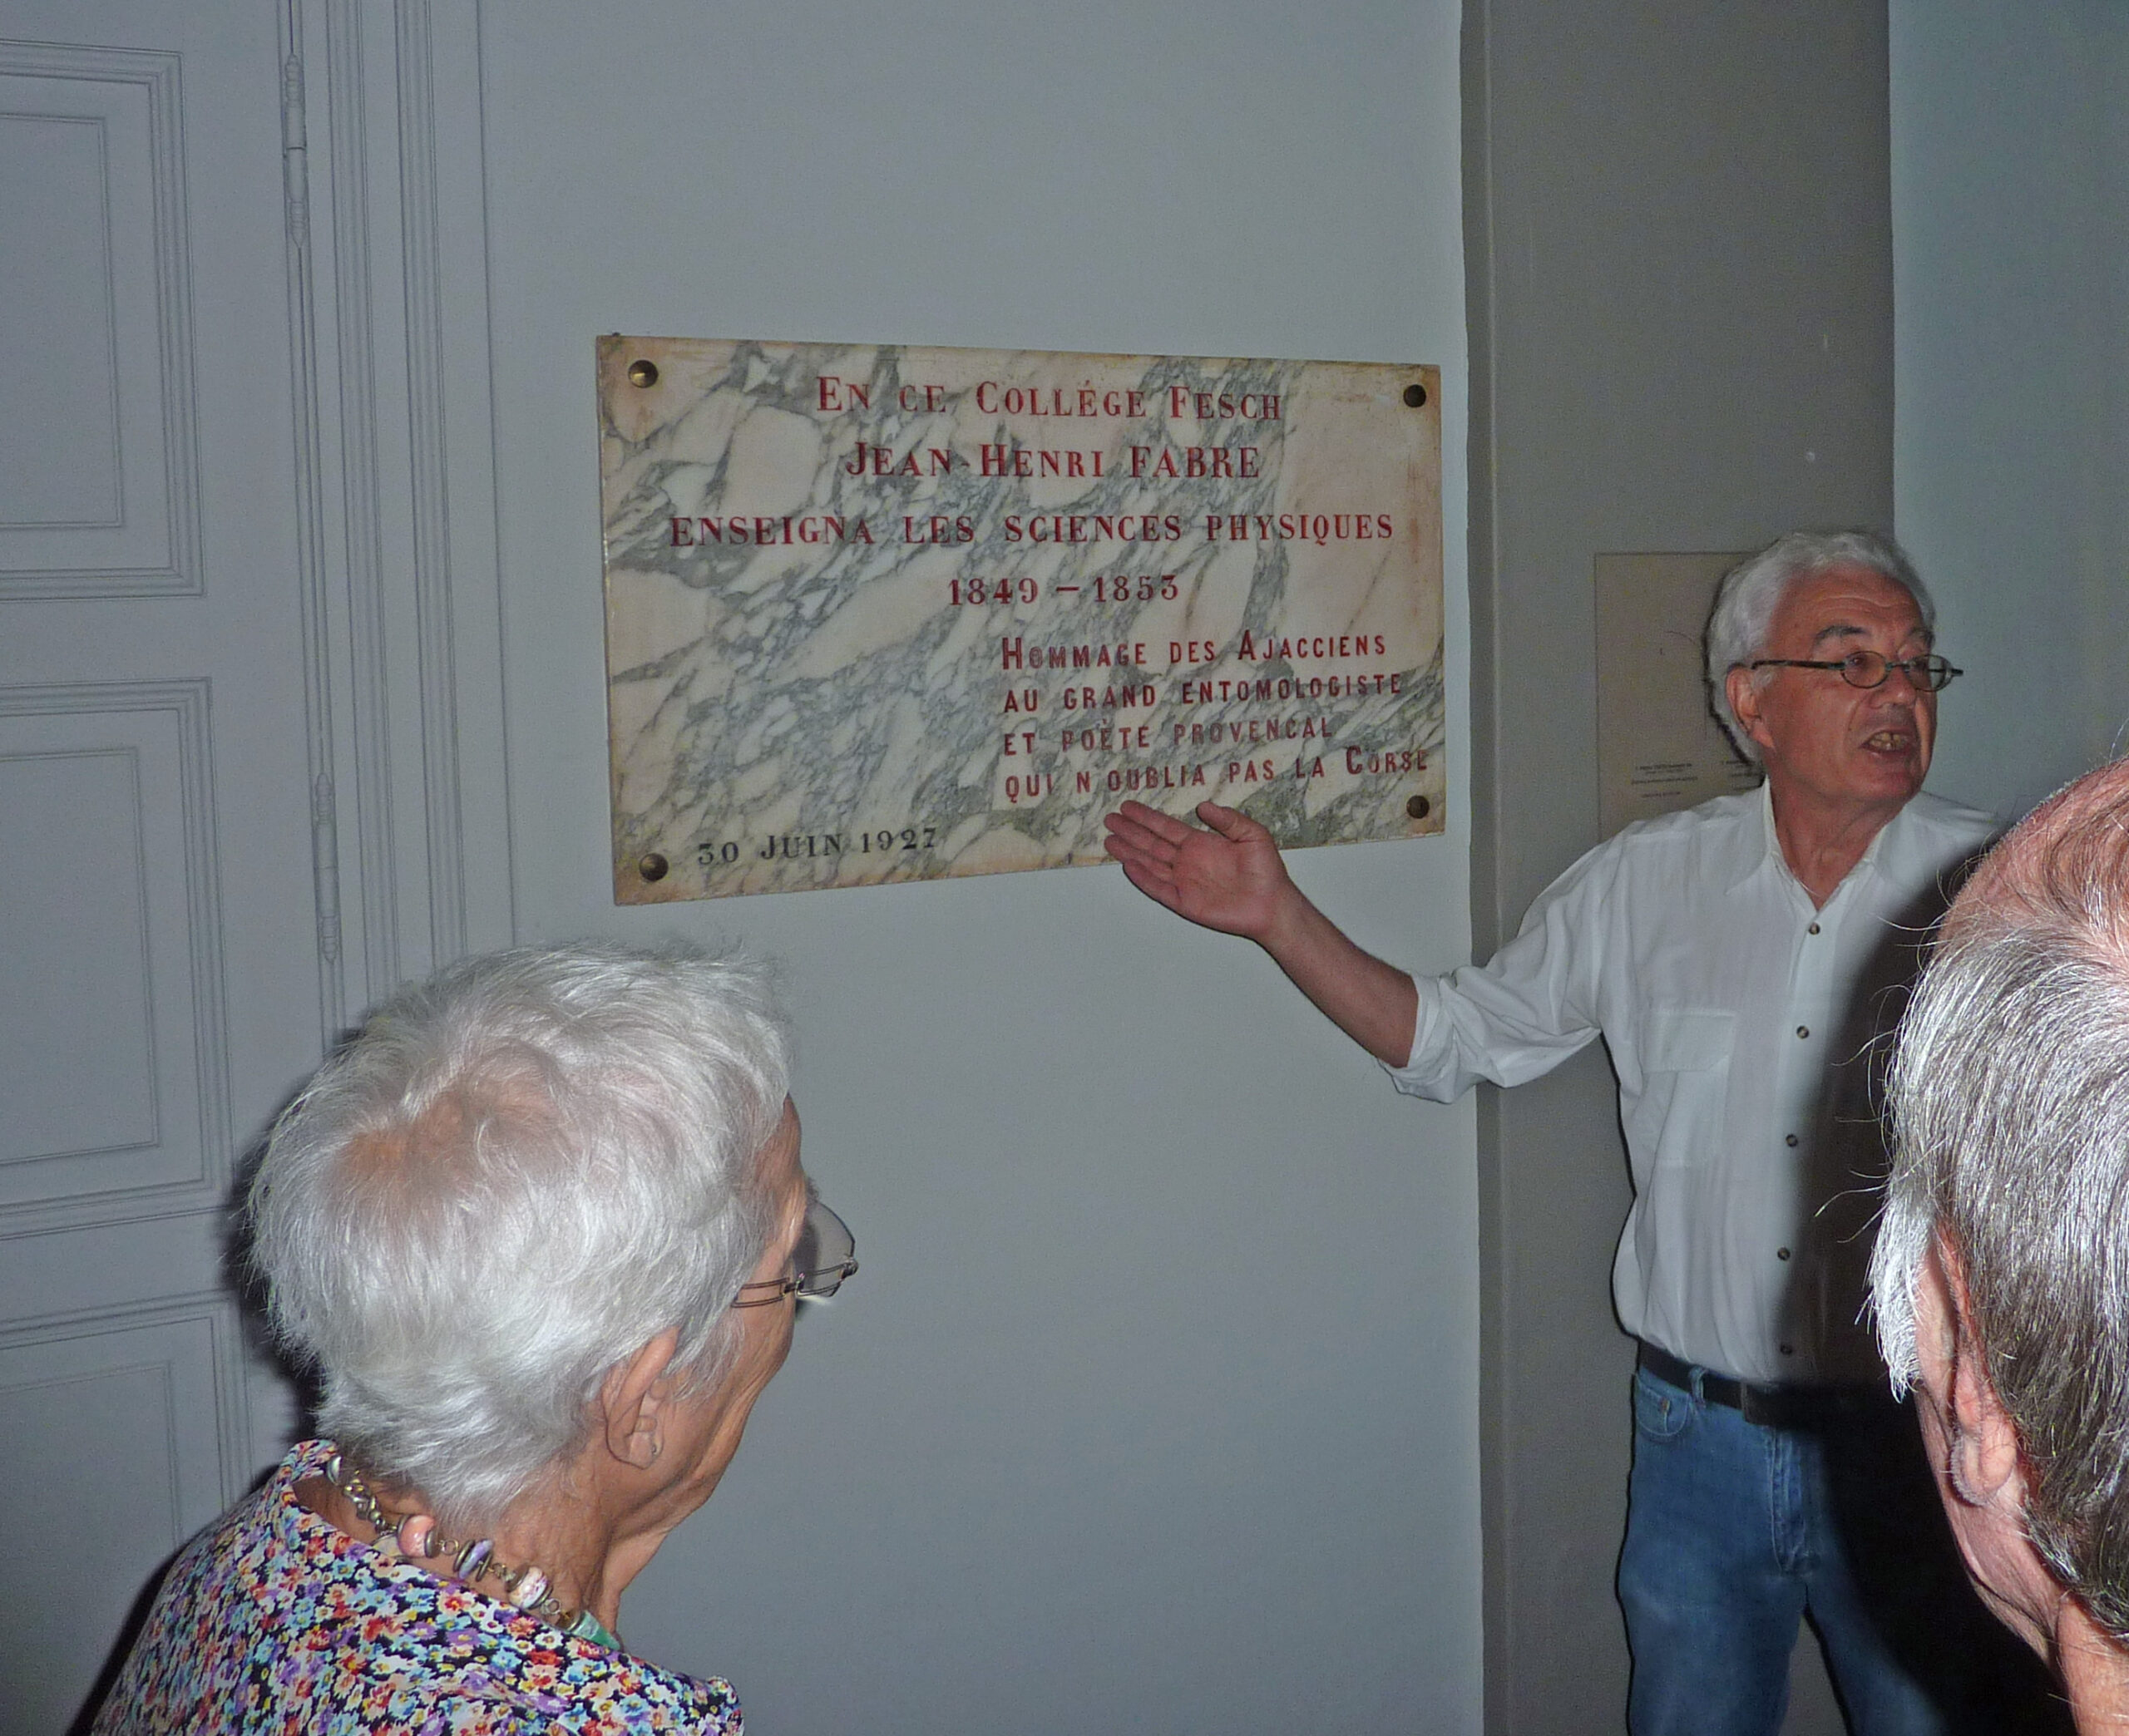 EN CE COLLÉGE FESCH
JEAN-HENRI FABRE
ENSEIGNA LES SCIENCES PHYSIQUES
1849 – 1853
HOMMAGE DES AJACCIENS
AU GRAND ENTOMOLOGISTE
ET POÈTE PROVENCAL
QUI N'OUBLIA PAS LA CORSE
30 JUIN 1927